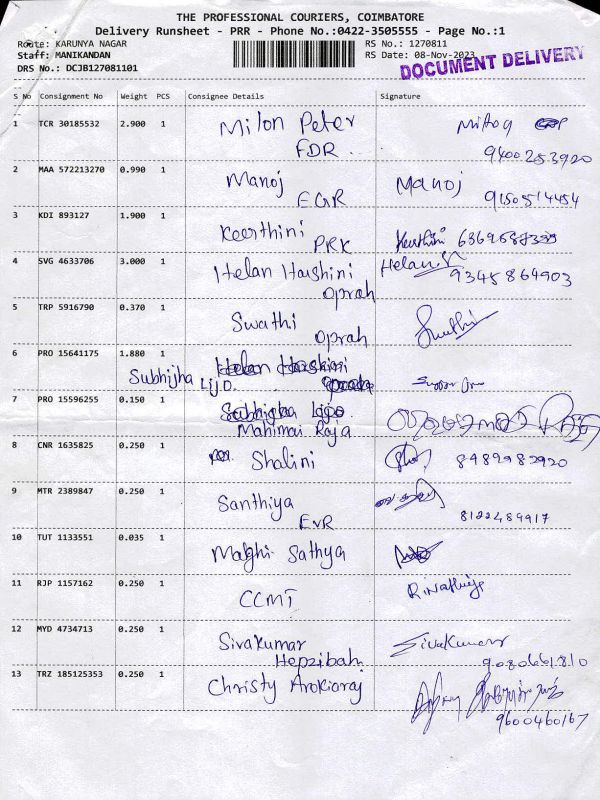 THE PROFESSIONAL COURIERS, COIMBATORE
Delivery Runsheet - PRR - Phone No.:0422-3505555 - Page No.:1
Route: KARUNYA NAGAR RS No.: 1270811
Staff: MANIKANDAN RS Date: 08-Nov-2023
DRS No.: DCJB127081101 DOCUMENT DELIVERY
S No Consignment No Weight PCS Consignee Details Signature
1 TCR 30185532 2.900 1 Milon Peter
FDR 9400253920
2 MAA 572213270 0.990 1 Manoj Manoj
EGR 9150514454
3 KDI 893127 1.900 1 Keerthini Keerthini
PRK
4 SVG 4633706 3.000 1 Helan Harshini Helan
oprah 9345864903
5 TRP 5916790 0.370 1 Swathi Swathi
oprah
6 PRO 15641175 1.880 1 Helan Harshini
Subhijha Lijo
7 PRO 15596255 0.150 1
Mahimai Raja
8 CNR 1635825 0.250 1 Shalini 8489982920
9 MTR 2389847 0.250 1 Santhiya
EVR 8122489917
10 TUT 1133551 0.035 1 Sathya
11 RJP 1157162 0.250 1 CCMT
12 MYD 4734713 0.250 1 Sivakumar Sivakumar
Hepzibah 9080661810
13 TRZ 185125353 0.250 1 Christy Arokiaraj
9600460167